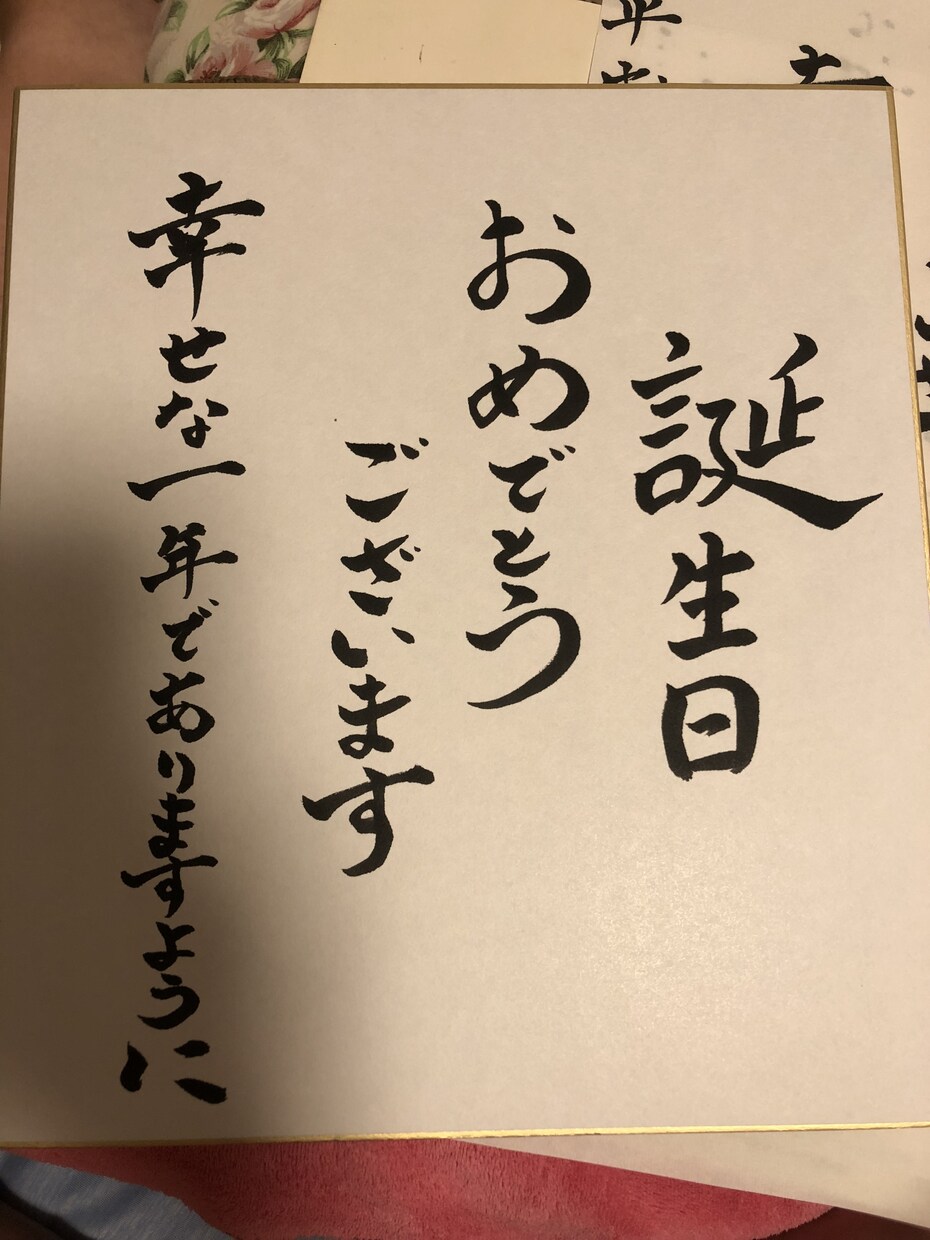 誕生日
おめでとう
ございます
幸せな一年でありますように